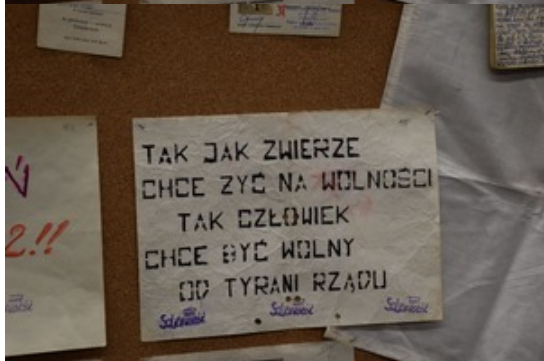 TAK JAK ZWIERZE
CHCE ZYĆ NA WOLNOŚCI
TAK CZŁOWIEK
CHCE BYĆ WOLNY
OD TYRANI RZĄDU
Solidarność Solidarność Solidarność
Ń
2.!!